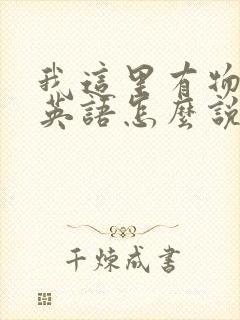 我這里有物
英語怎麼說
千煉成書